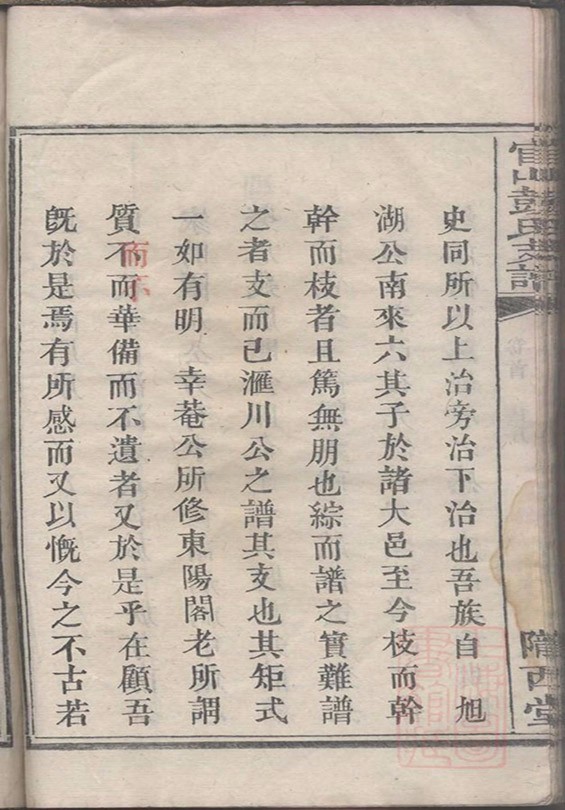 官山彭氏族譜
卷首
隴西堂
史同所以上治旁治下治也吾族自 旭
湖公南來六其子於諸大邑至今枝而幹
幹而枝者且篤無朋也綜而譜之實難譜
之者支而已滙川公之譜其支也其矩式
一如有明 幸菴公所修東陽閣老所謂
質不而華備而不遺者又於是乎在顧吾
而不
旣於是焉有所感而又以慨今之不古若